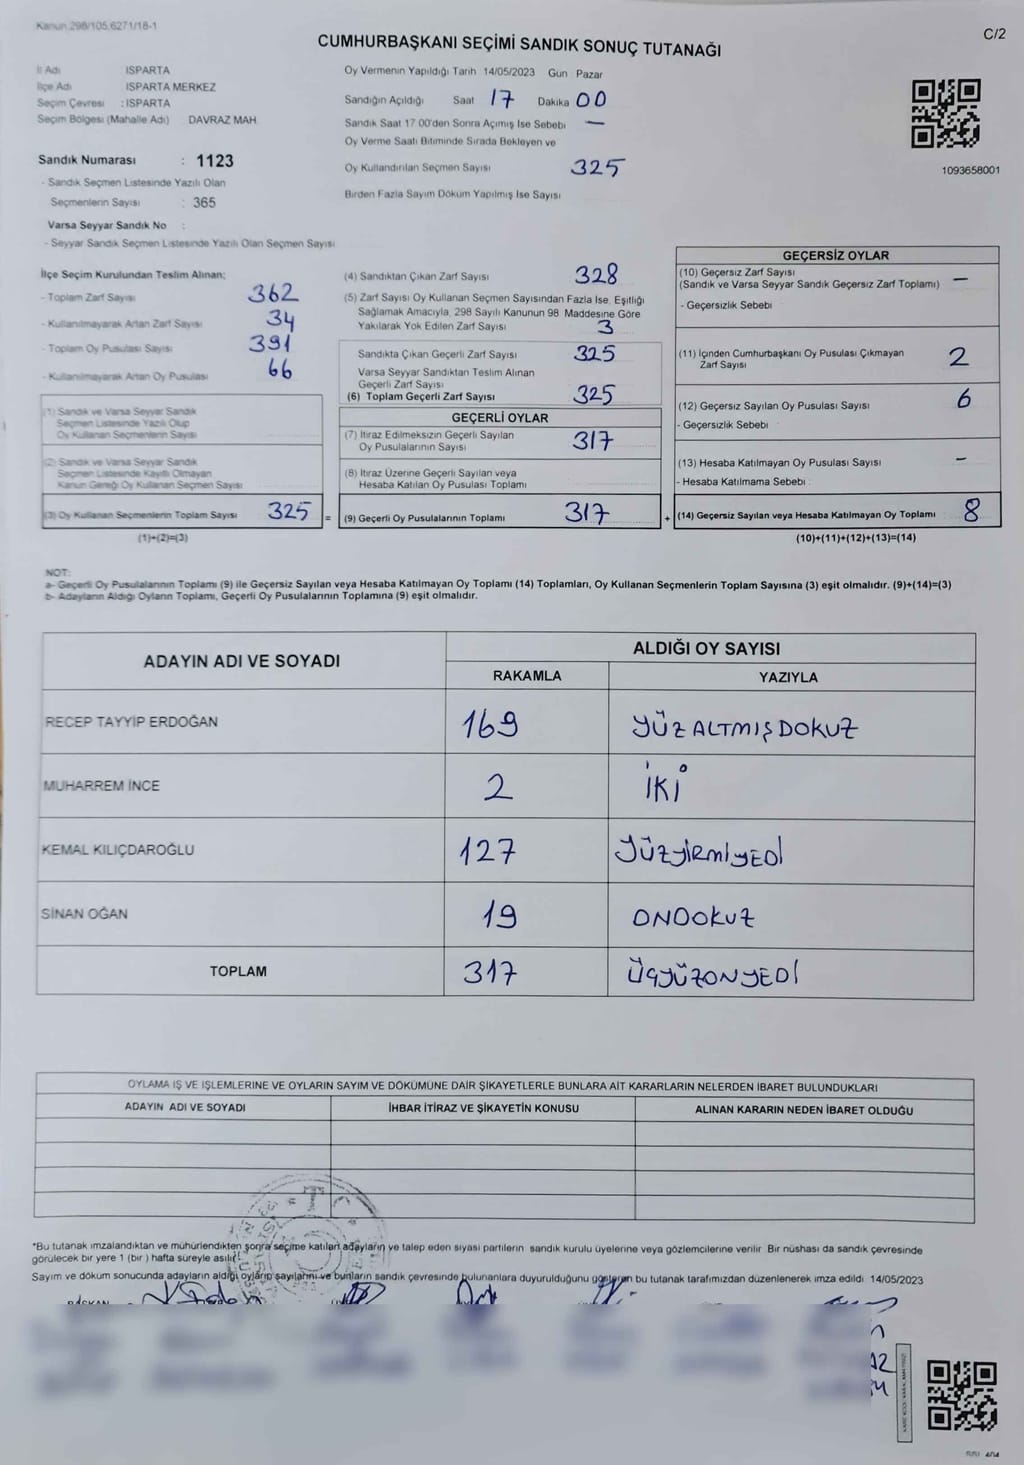 Kanun 298/105,6271/18-1
C/2
CUMHURBAŞKANI SEÇİMİ SANDIK SONUÇ TUTANAĞI
İl Adı : ISPARTA
İlçe Adı ISPARTA MERKEZ
Seçim Çevresi : ISPARTA
Seçim Bölgesi (Mahalle Adı) DAVRAZ MAH.
Sandık Numarası : 1123
- Sandık Seçmen Listesinde Yazılı Olan
Seçmenlerin Sayısı : 365
Varsa Seyyar Sandık No :
- Seyyar Sandık Seçmen Listesinde Yazılı Olan Seçmen Sayısı
Oy Vermenin Yapıldığı Tarih 14/05/2023 Gün Pazar
Sandığın Açıldığı Saat 17 Dakika 00
Sandık Saat 17.00'den Sonra Açılmış İse Sebebi —
Oy Verme Saati Bitiminde Sırada Bekleyen ve
Oy Kullandırılan Seçmen Sayısı 325
Birden Fazla Sayım Döküm Yapılmış İse Sayısı
1093658001
İlçe Seçim Kurulundan Teslim Alınan;
- Toplam Zarf Sayısı 362
- Kullanılmayarak Artan Zarf Sayısı 34
- Toplam Oy Pusulası Sayısı 391
- Kullanılmayarak Artan Oy Pusulası 66
(1) Sandık ve Varsa Seyyar Sandık
Seçmen Listesinde Yazılı Olup
Oy Kullanan Seçmenlerin Sayısı
(2) Sandık ve Varsa Seyyar Sandık
Seçmen Listesinde Kayıtlı Olmayan
Kanun Gereği Oy Kullanan Seçmen Sayısı
(3) Oy Kullanan Seçmenlerin Toplam Sayısı 325 =
(1)+(2)=(3)
(4) Sandıktan Çıkan Zarf Sayısı 328
(5) Zarf Sayısı Oy Kullanan Seçmen Sayısından Fazla İse, Eşitliği
Sağlamak Amacıyla, 298 Sayılı Kanunun 98. Maddesine Göre
Yakılarak Yok Edilen Zarf Sayısı 3
Sandıkta Çıkan Geçerli Zarf Sayısı 325
Varsa Seyyar Sandıktan Teslim Alınan
Geçerli Zarf Sayısı
(6) Toplam Geçerli Zarf Sayısı 325
GEÇERLİ OYLAR
(7) İtiraz Edilmeksizin Geçerli Sayılan
Oy Pusulalarının Sayısı 317
(8) İtiraz Üzerine Geçerli Sayılan veya
Hesaba Katılan Oy Pusulası Toplamı
(9) Geçerli Oy Pusulalarının Toplamı 317 +
GEÇERSİZ OYLAR
(10) Geçersiz Zarf Sayısı
(Sandık ve Varsa Seyyar Sandık Geçersiz Zarf Toplamı) —
- Geçersizlik Sebebi
(11) İçinden Cumhurbaşkanı Oy Pusulası Çıkmayan
Zarf Sayısı 2
(12) Geçersiz Sayılan Oy Pusulası Sayısı 6
- Geçersizlik Sebebi
(13) Hesaba Katılmayan Oy Pusulası Sayısı —
- Hesaba Katılmama Sebebi
(14) Geçersiz Sayılan veya Hesaba Katılmayan Oy Toplamı 8
(10)+(11)+(12)+(13)=(14)
NOT:
a- Geçerli Oy Pusulalarının Toplamı (9) ile Geçersiz Sayılan veya Hesaba Katılmayan Oy Toplamı (14) Toplamları, Oy Kullanan Seçmenlerin Toplam Sayısına (3) eşit olmalıdır. (9)+(14)=(3)
b- Adayların Aldığı Oyların Toplamı, Geçerli Oy Pusulalarının Toplamına (9) eşit olmalıdır.
ADAYIN ADI VE SOYADI
ALDIĞI OY SAYISI
RAKAMLA YAZIYLA
RECEP TAYYİP ERDOĞAN 169 YÜZALTMIŞDOKUZ
MUHARREM İNCE 2 İKİ
KEMAL KILIÇDAROĞLU 127 YÜZYİRMİYEDİ
SİNAN OĞAN 19 ONDOKUZ
TOPLAM 317 ÜÇYÜZONYEDİ
OYLAMA İŞ VE İŞLEMLERİNE VE OYLARIN SAYIM VE DÖKÜMÜNE DAİR ŞİKAYETLERLE BUNLARA AİT KARARLARIN NELERDEN İBARET BULUNDUKLARI
ADAYIN ADI VE SOYADI İHBAR İTİRAZ VE ŞİKAYETİN KONUSU ALINAN KARARIN NEDEN İBARET OLDUĞU
*Bu tutanak imzalandıktan ve mühürlendikten sonra seçime katılan adayların ve talep eden siyasi partilerin sandık kurulu üyelerine veya gözlemcilerine verilir. Bir nüshası da sandık çevresinde
görülecek bir yere 1 (bir) hafta süreyle asılır.
Sayım ve döküm sonucunda adayların aldığı oyların sayılarını ve bunların sandık çevresinde bulunanlara duyurulduğunu gösteren bu tutanak tarafımızdan düzenlenerek imza edildi. 14/05/2023
BAŞKAN